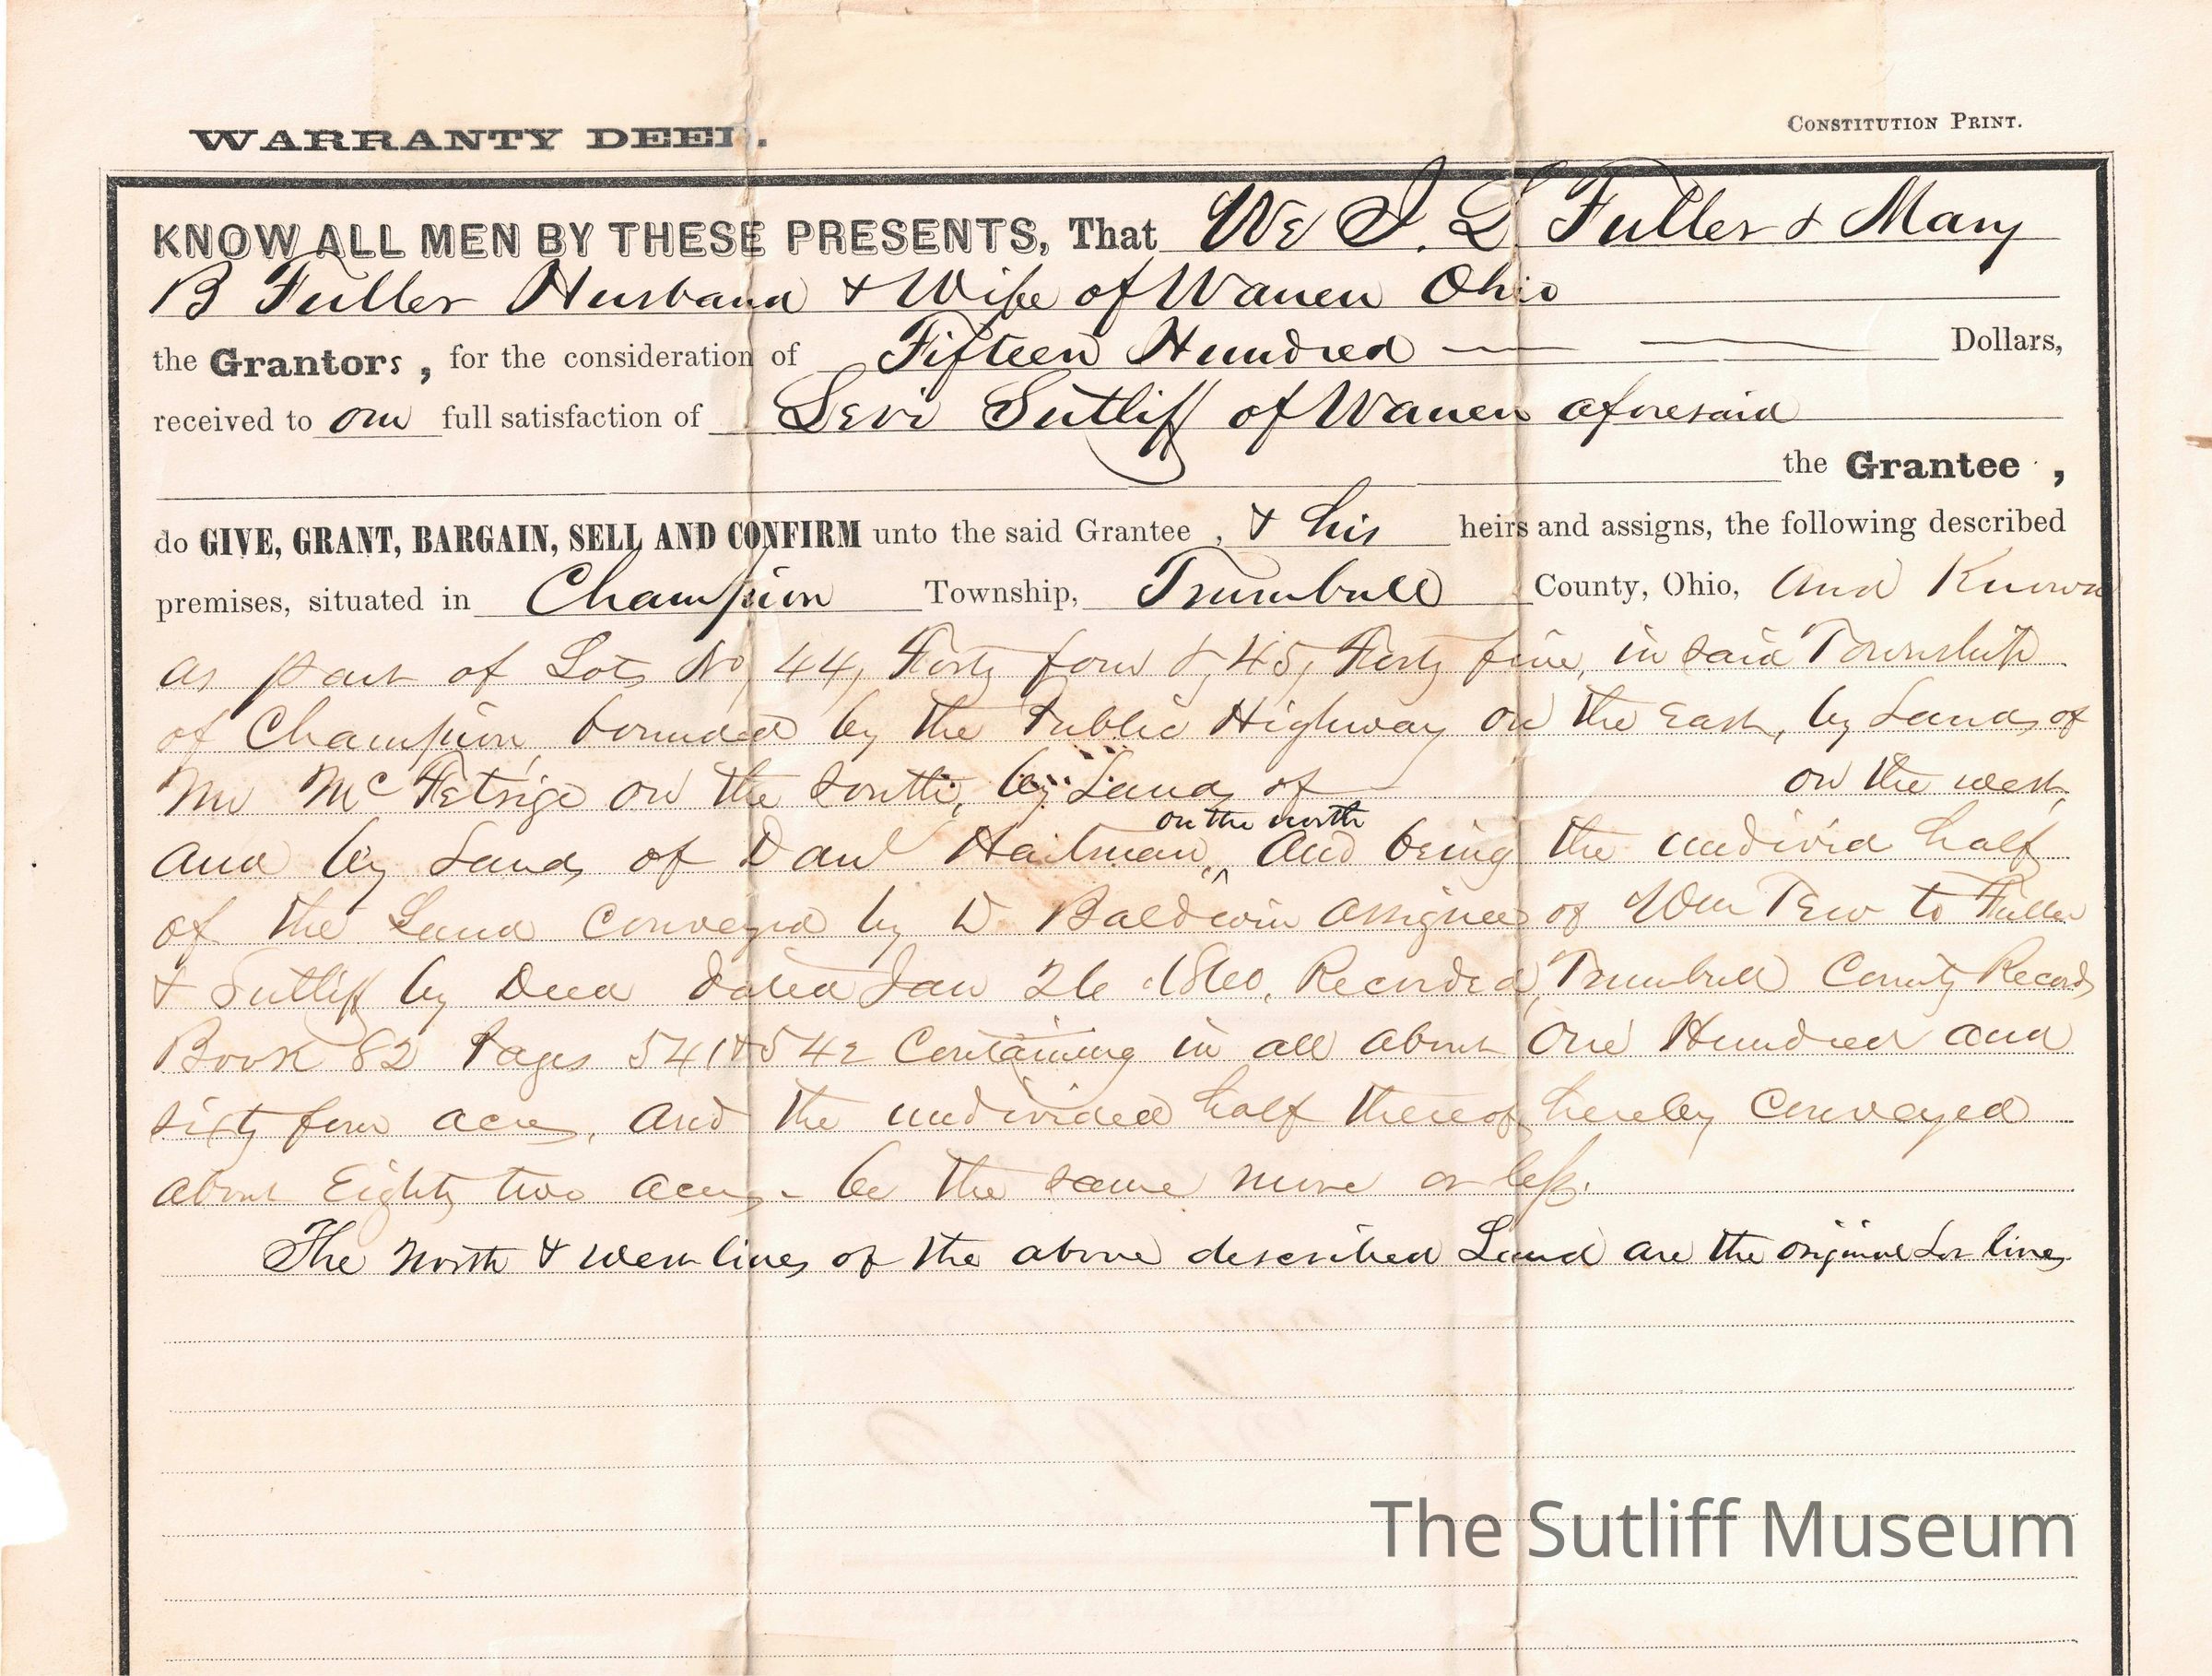 WARRANTY DEED.
CONSTITUTION PRINT.
KNOW ALL MEN BY THESE PRESENTS, That We I. L. Fuller & Mary
B Fuller Husband & Wife of Warren Ohio
the Grantors, for the consideration of Fifteen Hundred Dollars,
received to our full satisfaction of Levi Sutliff of Warren aforesaid
the Grantee,
do GIVE, GRANT, BARGAIN, SELL AND CONFIRM unto the said Grantee, & his heirs and assigns, the following described
premises, situated in Champion Township, Trumbull County, Ohio, and Known
as part of Lots No 44, Forty four & 45, Forty five, in said Township
of Champion, bounded by the Public Highway on the East, by Lands of
Mr McFetrige on the South, by Lands of on the west,
on the north
and by Lands of Danl Hailman, and being the undivid half
of the Land conveyed by D Baldwin Assignee of Wm Tew to Fuller
& Sutliff by Deed dated Jan 26 1860, Recorded, Trumbull County Records
Book 82 Pages 541 & 542 Containing in all about One Hundred and
sixty four acres, and the undivided half thereof hereby conveyed
about Eighty two acres - be the same more or less.
The North & West lines of the above described Land are the original Lot lines
The Sutliff Museum